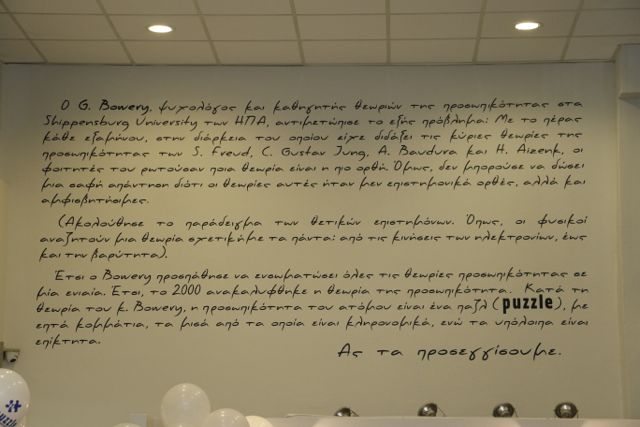 Ο G. Bowery, ψυχολόγος και καθηγητής θεωριών της προσωπικότητας στα
Shippensburg University των ΗΠΑ, αντιμετώπισε το εξής πρόβλημα: Με το πέρας
κάθε εξαμήνου, στην διάρκεια του οποίου είχε διδάξει τις κύριες θεωρίες της
προσωπικότητας των S. Freud, C. Gustav Jung, A. Baudura και H. Aizenk, οι
φοιτητές του ρωτούσαν ποια θεωρία είναι η πιο ορθή. Όμως, δεν μπορούσε να δώσει
μια σαφή απάντηση διότι οι θεωρίες αυτές ήταν μεν επιστημονικά ορθές, αλλά και
αμφισβητήσιμες.
(Ακολούθησε το παράδειγμα των θετικών επιστημόνων. Όπως, οι φυσικοί
αναζητούν μια θεωρία σχετική με τα πάντα: από τις κινήσεις των ηλεκτρονίων, έως
και την βαρύτητα).
Έτσι ο Bowery προσπάθησε να ενσωματώσει όλες τις θεωρίες προσωπικότητας σε
μία ενιαία. Έτσι, το 2000 ανακαλύφθηκε η θεωρία της προσωπικότητα. Κατά τη
θεωρία του κ. Bowery, η προσωπικότητα του ατόμου είναι ένα παζλ (puzzle), με
επτά κομμάτια, τα μισά από τα οποία είναι κληρονομικά, ενώ τα υπόλοιπα είναι
επίκτητα.
Ας τα προσεγγίσουμε.
puzzle